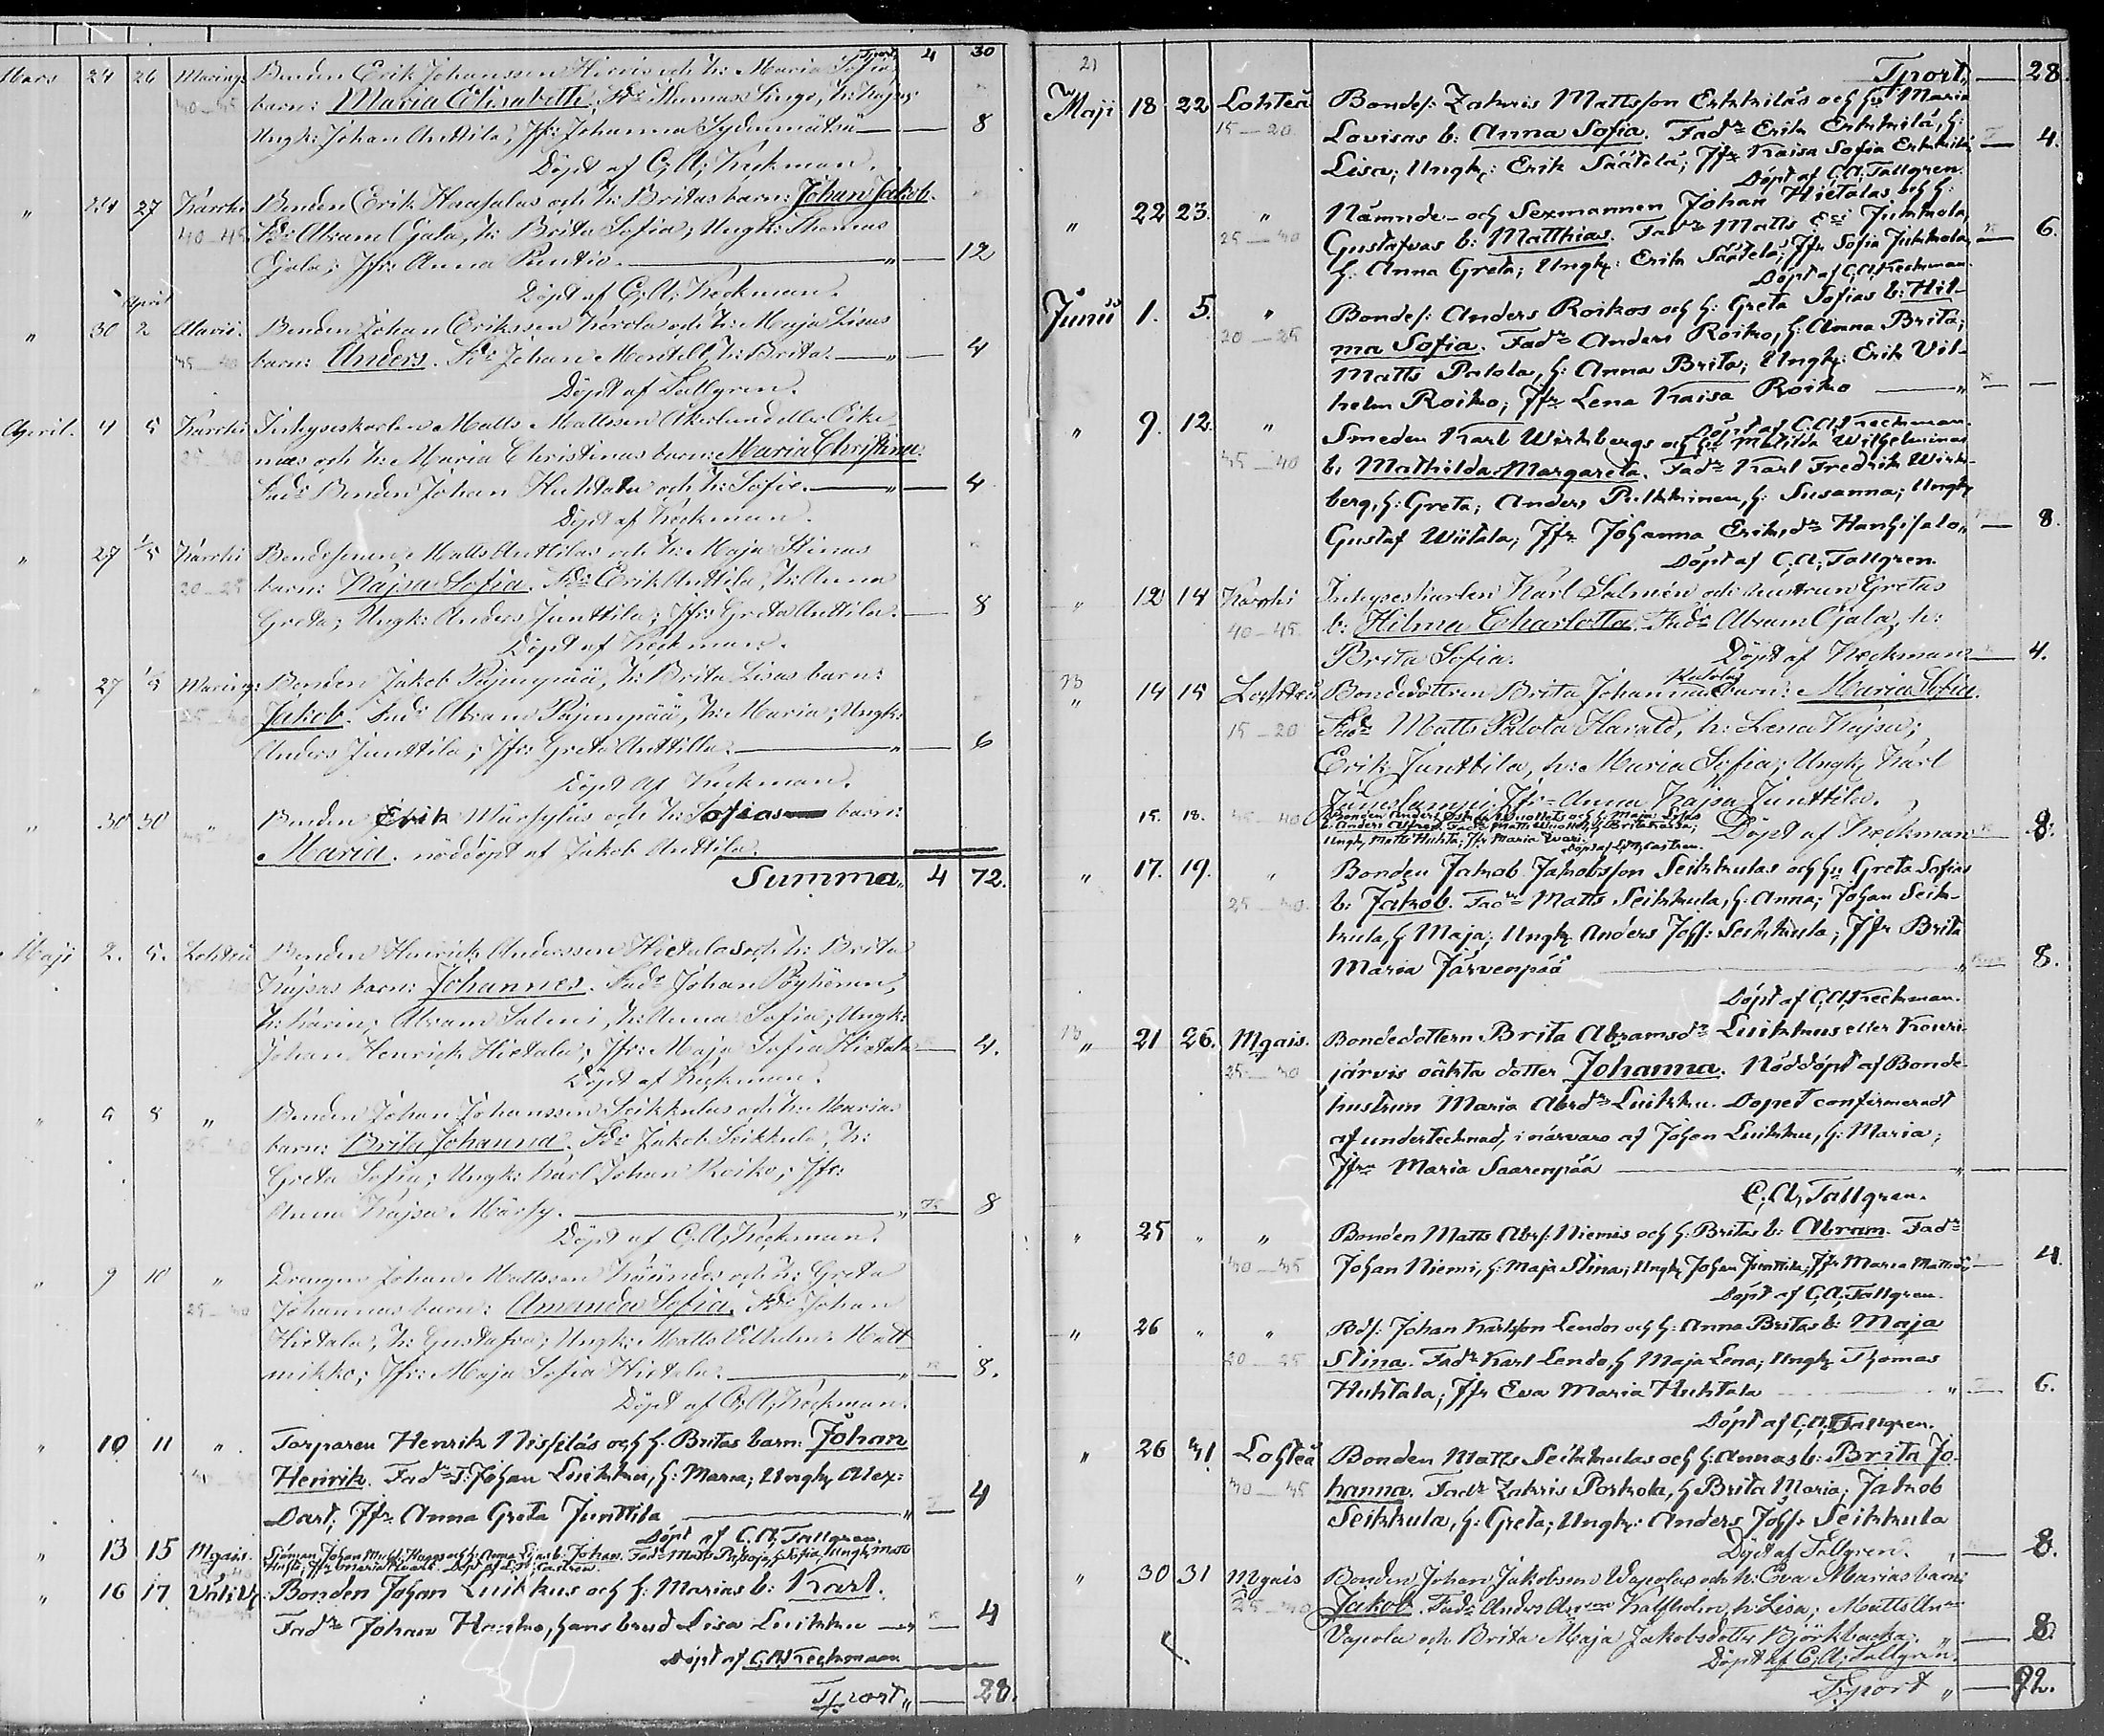 Tport 4 30
Mars 24 26 Marings Bonden Erik Johansson Hirvis och h: Maria Sofias
40–45 barn: Maria Elisabeth. Fdr Thomas Singo, h: Kajsa;
Ungk: Johan Anttila, Jfr: Johanna Sydänmätsä — 8
Döpt af C. A. Keckman.
" 24 27 Karrhi Bonden Erik Haapalas och h: Britas barn: Johan Jakob.
40–45 Fdr: Abram Ojala, h: Brita Sofia; Ungk: Thomas
Ojala; Jfr: Anna Puntio. — " — 12
Döpt af C. A. Keckman.
April
" 30 2 Alavii. Bonden Johan Eriksson Karola och h: Maja Lisas
35–40 barn: Anders. Fdr Johan Mertell, h: Brita. — " — 4
Döpt af Tallgren.
April. 4 5 Karrhi Inhyseskarlen Matts Mattsson Åkerlund eller Oike-
25–30 nas och h: Maria Christinas barn: Maria Christina.
Fadr Bonden Johan Huhtala och h: Sofie. — " — 4
Döpt af Keckman.
" 27 1/5 Karrhi Bondesonen Matts Anttilas och h: Maja Stinas
20–25 barn: Kajsa Sofia. Fdr: Erik Anttila, h: Anna
Greta; Ungk: Anders Junttila; Jfr: Greta Anttila. — 8
Döpt af Keckman.
" 27 1/5 Maring: Bonden Jakob Pajunpää, h: Brita Lisas barn:
25–30 Jakob. Fadr Abram Pajunpää, h: Maria; Ungk:
Anders Junttila; Jfr: Greta Anttila. — " — 6
Döpt af Keckman.
" 30 30 " Bonden Erik Märsylas och h: Sofias barn:
Maria. nöddöpt af Jakob Anttila.
Summa " 4 72.
Maji 2. 5. Lohteå Bonden Henrik Andersson Hietalas och h: Brita
Kajsas barn: Johannes. Fadr Johan Pöyhönen,
h: Karin; Abram Salmi, h: Anna Sofia; Ungk:
Johan Henrich Hietala; Jfr: Maja Sofia Hietala — 4.
Döpt af Keckman.
" 4 8 " Bonden Johan Johansson Seikkulas och h: Marias
25–30 barn: Brita Johanna. Fdr Jakob Seikkula, h:
Greta Sofia; Ungk: Karl Johan Roiko; Jfr:
Anna Kajsa Märsy. — " K 8
Döpt af C. A. Keckman.
" 9 10 " Drengen Johan Mattsson Käändes och h: Greta
25–30 Johannas barn: Amanda Sofia. Fdr Johan
Hietala, h: Gustafva; Ungk: Matts Vilhelm Matt-
mikko; Jfr: Maja Sofia Hietala. — " — 8.
Döpt af C. A. Keckman.
" 10 11 " Torparen Henrik Nissiläs och h. Britas barn: Johan
Henrik. Fadr T: Johan Luikku, h: Maria; Ungk Alex:
Dart; Jfr Anna Greta Junttila — " — 4
Döpt af C. A. Tallgren.
" 13 15 Mgais. Sjöman Johan
" 16 17 Väli Bonden Johan Luikkus och h: Marias b: Karl.
Fadr Johan Hanko, hans brud Lisa Luikku — " — 4
Döpt af C. A. Keckman
Tport " — 28.
21 Tport — 28.
Maji 18 22 Lohteå Bondes: Zakris Mattsson Erkkiläs och h: Maria
15–20 Lovisas b: Anna Sofia. Fadr Erik Erkkilä, h:
Lisa; Ungk: Erik Säätelä; Jfr Kaisa Sofia Erkkilä — 4.
Döpt af C. A. Tallgren.
" 22 23. " Nämnde- och Sexmannen Johan Hietalas och h:
25–30 Gustafvas b: Matthias. Fadr Matts Jukkola,
h. Anna Greta; Ungk: Erik Säätelä; Jfr Sofia Jukkola, — 6.
Döpt af C. A. Keckman.
Junii 1. 5. " Bondes: Anders Roikos och h: Greta Sofias b: Hil-
20–25 ma Sofia. Fadr Anders Roiko, h: Anna Brita;
Matts Palola, h: Anna Brita; Ungk: Erik Vil-
helm Roiko; Jfr Lena Kaisa Roiko — " —
Döpt af C. A. Keckman.
" 9. 12. " Smeden Karl Wirkbergs och h: Matilda Wilhelminas
35–40 b. Mathilda Margareta. Fadr Karl Fredrik Wirk-
berg, h: Greta; Anders Pulkkinen, h: Susanna; Ungk
Gustaf Wiitala; Jfr Johanna Eriksdr Hanhisalo " — 8.
Döpt af C. A. Tallgren.
" 12 14 Karrhi Inhyseskarlen Karl Salmén och hustrun Gretas
40–45. b: Hilma Charlotta. Fadr Abram Ojala, h:
Brita Sofia. Döpt af Keckman — 4.
" 14 15 Lohteå Bondedottren Brita Johannas barn: Maria Sofia.
15–20 Fadr Matts Palola Harald, h: Lena Kajsa;
Erik Junttila, h: Maria Sofia; Ungk Karl
Jfr Anna Kajsa Junttila.
15. 18. 35–40 Bonden Anders
b: Anders Alfred. Fadr Matts
Ungk Matts Huhta; Jfr Maria
Döpt af Keckman — 8.
" 17. 19. " Bonden Jakob Jakobsson Seikkulas och h: Greta Sofias
25–30. b: Jakob. Fadr Matts Seikkula, h: Anna; Johan Seik-
kula, h Maja; Ungk Anders Johs: Seikkula; Jfr Brita
Maria Järvenpää — " 8.
Döpt af C. A. Keckman.
" 21 26. Mgais. Bondedottern Brita Abramsdr Luikkus eller Kouri-
25–30 järvis oäkta dotter Johanna. Nöddöpt af Bonde-
hustrun Maria Abrdr Luikku. Dopet confirmeradt
af undertecknad, i närvaro af Johan Luikku, h: Maria;
Jfr Maria Saarenpää — " —
C. A. Tallgren.
" 25 " " Bonden Matts Abrs: Niemis och h: Britas b: Abram. Fadr
30–35 Johan Niemi, h: Maja Stina; Ungk Johan Junttila; Jfr Maria — 4.
Döpt af C. A. Tallgren.
" 26 " " Bds: Johan Karlsson Lendos och h: Anna Britas b: Maja
20–25 Stina. Fadr Karl Lendo, h Maja Lena; Ungk Thomas
Huhtala; Jfr Eva Maria Huhtala " — 6.
Döpt af C. A. Tallgren.
" 26 31 Lohteå Bonden Matts Seikkulas och h: Annas b: Brita Jo-
30–35 hanna. Fadr Zakris Porkola, h Brita Maria; Jakob
Seikkula, h: Greta; Ungk: Anders Johs: Seikkula
Döpt af Tallgren. " — 8.
" 30 31 Mgais Bonden Johan Jakobsson Vapolas och h: Eva Marias barn:
25–30 Jakob. Fadr Anders Kalfholm, h: Lisa; Matts
Vapola och Brita Maja Jakobsdotter Björkbacka. " — 8.
Döpt af C. A. Tallgren.
Tport " — 92.